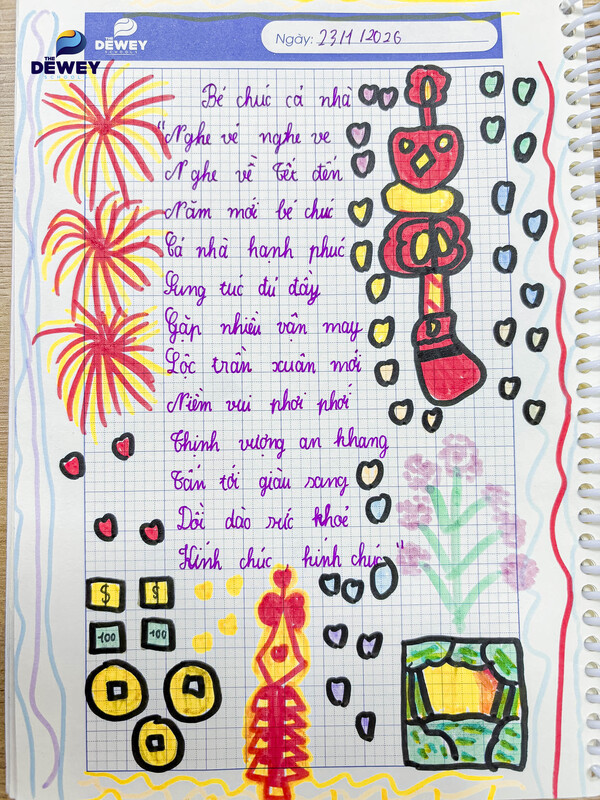 THE DEWEY SCHOOLS
THE DEWEY SCHOOLS
Ngày: 23/1/2026
Bé chúc cả nhà
"Nghe vẻ nghe ve
Nghe vè Tết đến
Năm mới bé chúc
Cả nhà hạnh phúc
Sung túc đủ đầy
Gặp nhiều vận may
Lộc tràn xuân mới
Niềm vui phơi phới
Thịnh vượng an khang
Tấn tới giàu sang
Dồi dào sức khoẻ
Kính chúc, kính chúc"
$ $
100 100